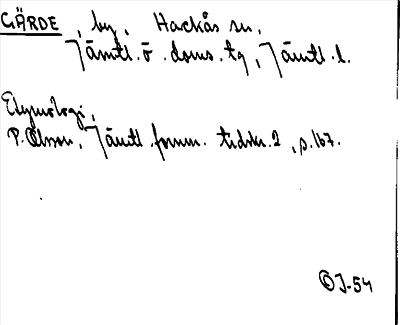 GÄRDE, by, Hackås sn,
Jämtl. ö. doms. tg, Jämtl. l.
Etymologi,
P. Olsson, Jämtl. fornm. tidskr. 2, s. 167.
ÖJ-54